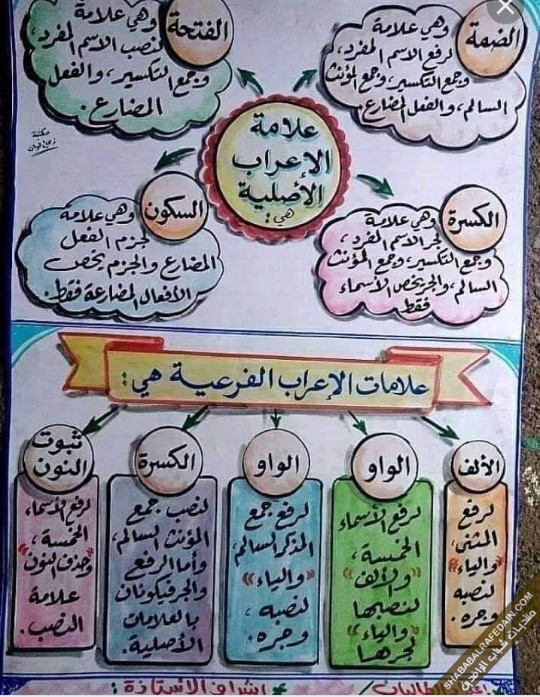 الضمة
وهي علامة
لرفع الاسم المفرد،
وجمع التكسير، وجمع المؤنث
السالم، والفعل المضارع.
الفتحة
وهي علامة
لنصب الاسم المفرد،
وجمع التكسير، والفعل
المضارع.
علامة
الإعراب
الأصلية
هي:
الكسرة
وهي علامة
لجر الاسم المفرد،
وجمع التكسير، وجمع المؤنث
السالم، والجر يخص الأسماء
فقط
السكون
وهي علامة
لجزم الفعل
المضارع والجزم يخص
الأفعال المضارعة فقط.
مكتبة
علامات الإعراب الفرعية هي:
الألف
لرفع
المثنى،
"والياء"
لنصبه
وجره.
الواو
لرفع الأسماء
الخمسة،
"والألف"
لنصبها
"والياء"
لجرها
الواو
لرفع جمع
المذكر السالم
"والياء"
لنصبه،
وجره.
الكسرة
لنصب جمع
المؤنث السالم،
وأما الرفع
والجر فيكونان
بالعلامتين
الأصلية.
ثبوت
النون
لرفع الأسماء
الخمسة،
"وحذف النون"
علامة
النصب.
إشراف الأستاذة:
SHABABALRAFEDAIN.COM
منتديات شباب الرافدين